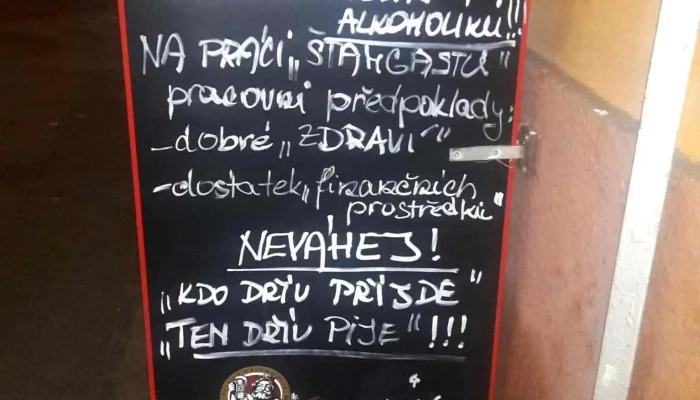 ALKOHOLIKU!!
NA PRÁCI „ŠTAMGASTU"
pracovní předpoklady:
-dobré „ZDRAVÍ"
-dostatek „finančních
prostředků"
NEVÁHEJ!
„KDO DŘÍV PŘIJDE"
„TEN DŘÍV PIJE"!!!